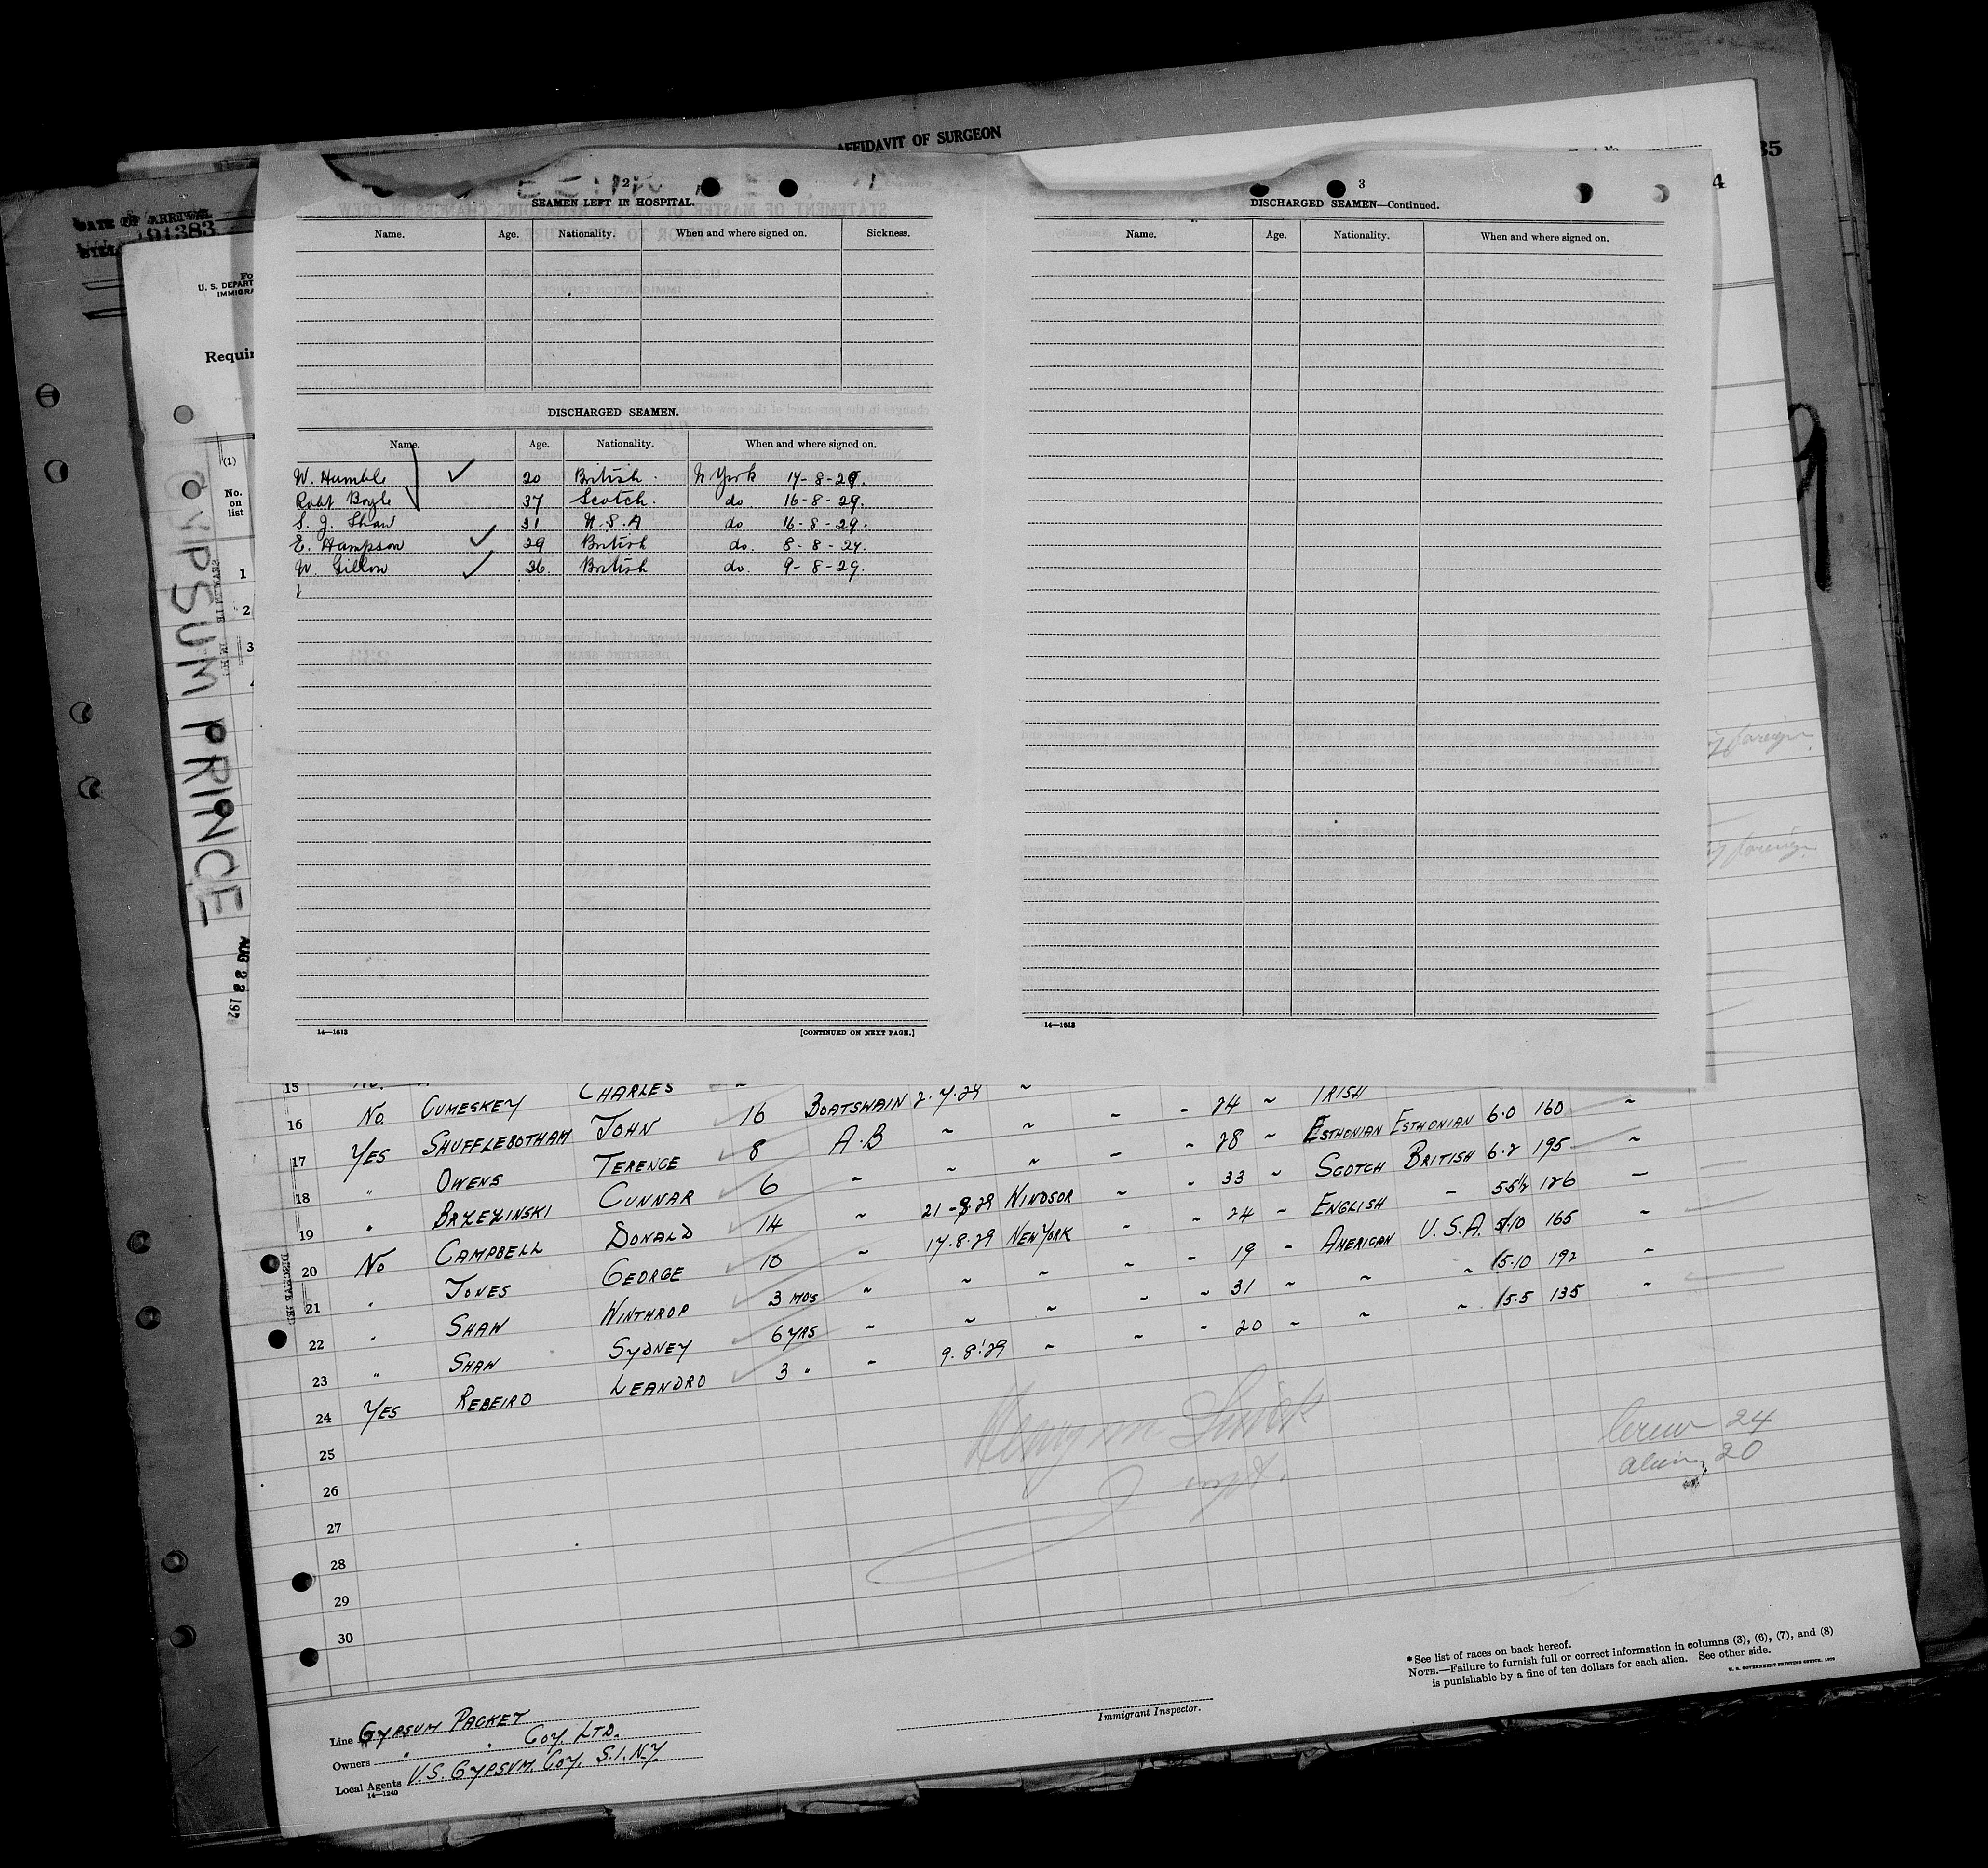 AFFIDAVIT OF SURGEON
35
4
DATE OF ARRIVAL
191383
U. S. DEPART
IMMIGRA
Requir
(1)
No.
on
list
1
2
3
GYPSUM PRINCE
AUG 28 192
2
SEAMEN LEFT IN HOSPITAL.
Name. Age. Nationality. When and where signed on. Sickness.
DISCHARGED SEAMEN.
Name. Age. Nationality. When and where signed on.
W. Humble 20 British. N York 14-8-29.
Robt Boyle 37 Scotch. do 16-8-29.
S. J. Shaw 31 U.S.A do 16-8-29.
E. Hampson 29 British do. 8-8-29.
W. Gillow 36. British do. 9-8-29.
14—1613 [CONTINUED ON NEXT PAGE.]
3
DISCHARGED SEAMEN—Continued.
Name. Age. Nationality. When and where signed on.
14—1613
foreign
foreign
15 No. CHARLES " IRISH
16 No. CUMESKEY JOHN 16 BOATSWAIN 2.7.29 " - - 24 " ESTHONIAN ESTHONIAN 6.0 160 "
17 YES SHUFFLEBOTHAM TERENCE 8 A.B " " - " 28 " SCOTCH BRITISH 6.2 195 "
18 " OWENS GUNNAR 6 " " " " " 33 " ENGLISH - 5 5½ 126 —
19 " BRZEZINSKI DONALD 14 " 21-8-29 WINDSOR " " 24 " AMERICAN U.S.A. 5.10 165 "
20 No CAMPBELL GEORGE 10 " 17.8.29 NEW YORK " " 19 " " " 5.10 192 "
21 " JONES WINTHROP 3 MOS " " " " " 31 " " " 5.5 135 "
22 " SHAW SYDNEY 6 YRS " " " " " 20 "
23 " SHAW LEANDRO 3 " " 9.8.29 "
24 YES REBEIRO
25
26
27
28
29
30
Inspt.
Crew 24
aliens 20
*See list of races on back hereof.
NOTE.—Failure to furnish full or correct information in columns (3), (6), (7), and (8)
is punishable by a fine of ten dollars for each alien. See other side.
U. S. GOVERNMENT PRINTING OFFICE
Immigrant Inspector.
Line GYPSUM PACKET
Owners " " COY. LTD.
Local Agents U.S. GYPSUM. COY. S.I. N.Y.
14—1240